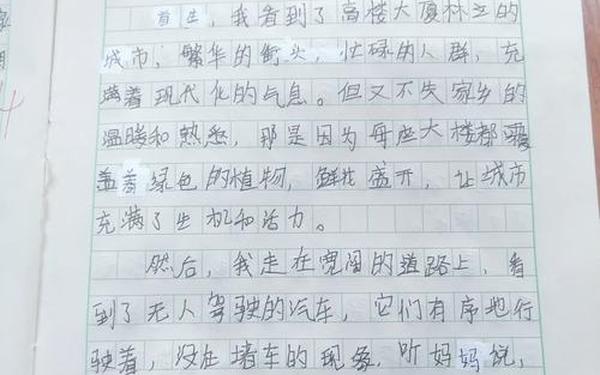 首先，我看到了高楼大厦林立的
城市，繁华的街头，忙碌的人群，充
满着现代化的气息。但又不失家乡的
温暖和热悉，那是因为每座大楼都覆
盖着绿色的植物，鲜花盛开，让城市
充满了生机和活力。
然后，我走在宽阔的道路上，看
到了无人驾驶的汽车，它们有序地行
驶着，没在堵车的现象，听妈妈说，